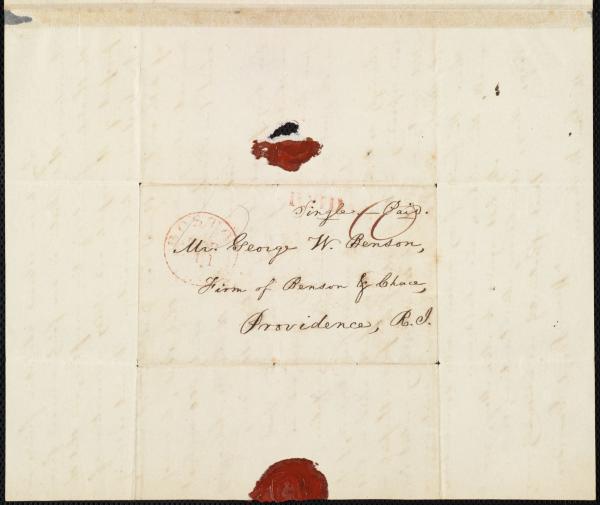 PAID
Single – Paid.
10
BOSTON
11
Mr. George W. Benson,
Firm of Benson & Chace,
Providence, R.I.